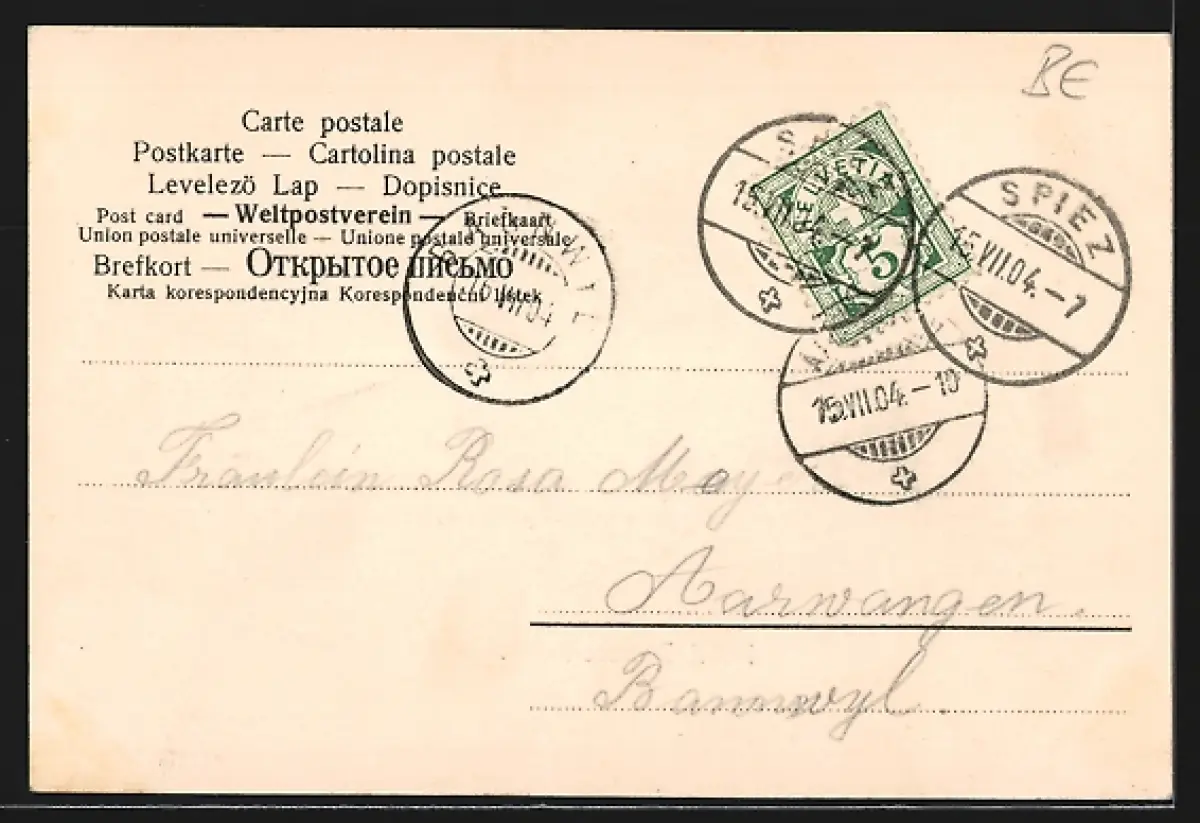 BE
Carte postale
Postkarte — Cartolina postale
Levelezö Lap — Dopisnice
Post card — Weltpostverein — Briefkaart
Union postale universelle — Unione postale universale
Brefkort — Открытое письмо
Karta korespondencyjna Korespondenční listek
HELVETIA
5
SPIEZ
15.VII.04.–7
15.VII.04.–10
Fräulein Rosa
Aarwangen.
Bannwyl.